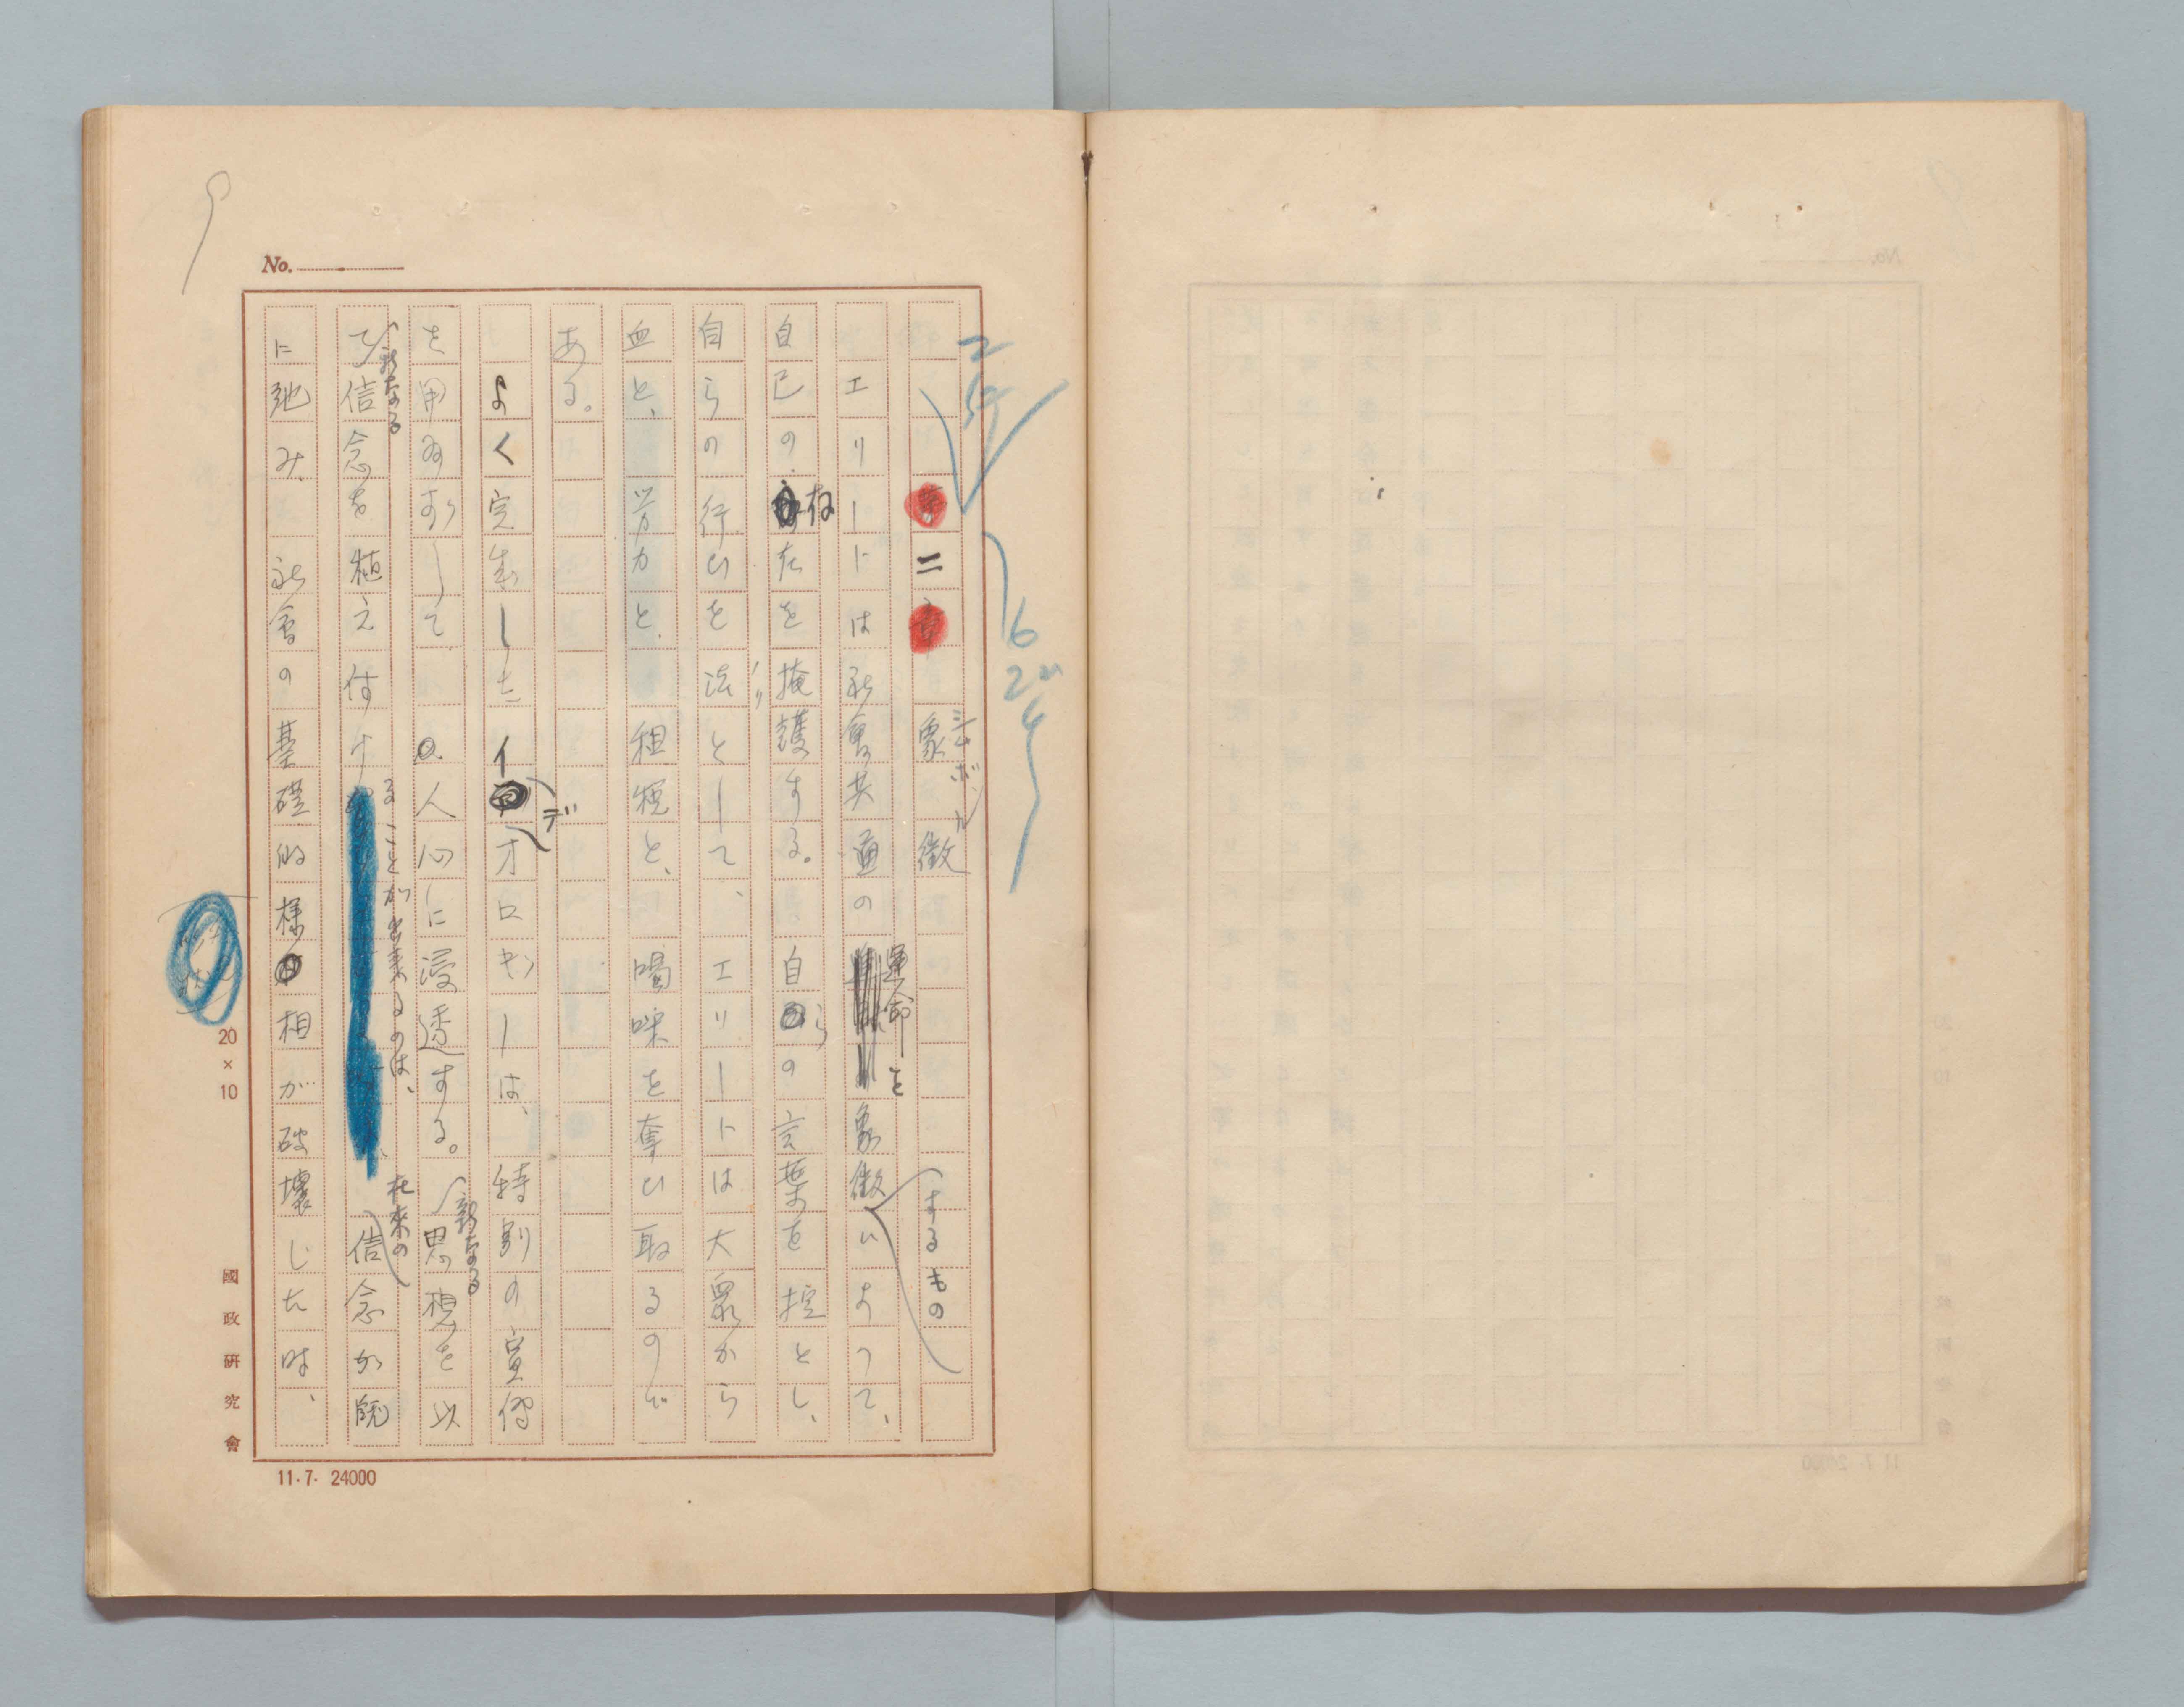 9
No.
2
6
第二章 象徴
シムボル
エリートは社會共通の運命を象徴するものによつて、
自己の存在を掩護する。自らの言葉を掟とし、
自らの行ひを法として、エリートは大衆から
ノリ
血と、労力と、租税と、喝采を奪ひ取るので
ある。
よく完成したイデオロギーは、特別の宣傳
を用ゐずして、人心に浸透する。新なる思想を以
て新なる信念を植え付けることが出来るのは、在来の信念が既
に弛み、社會の基礎的様相が破壊した時、
20×10
國政研究會
11.7. 24000